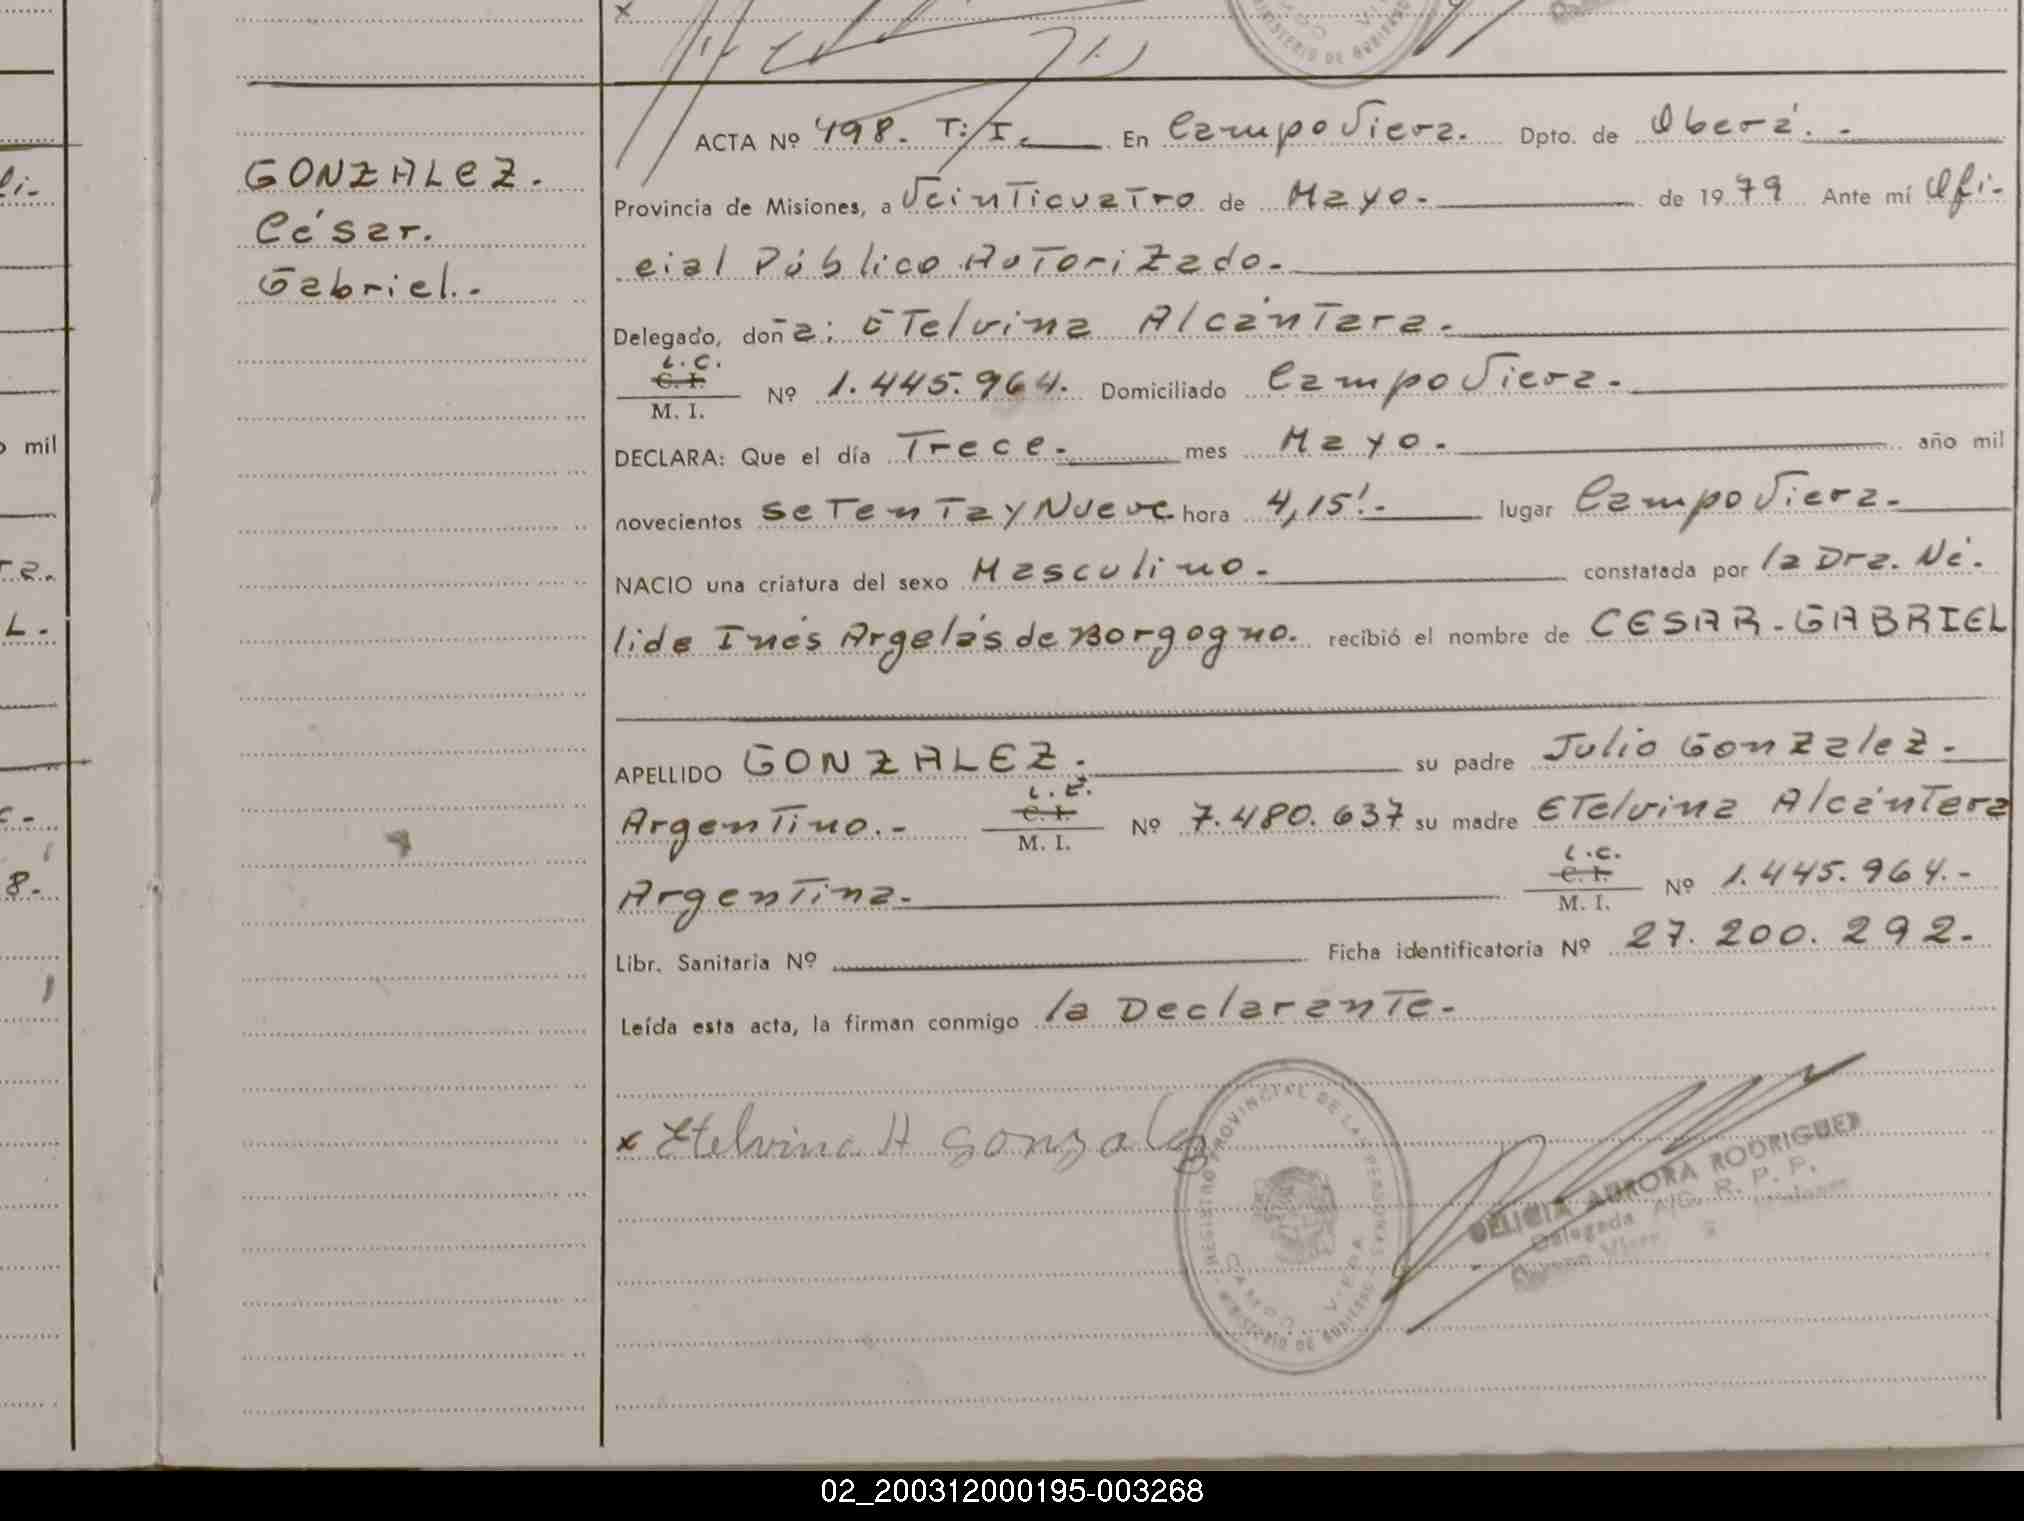 GONZALEZ.
César.
Gabriel.-
ACTA Nº 498. T: I. En Campo Viera. Dpto. de Oberá.-
Provincia de Misiones, a Veinticuatro de Mayo. de 1979 Ante mí Ofi-
cial Público Autorizado.
Delegado, doña: Etelvina Alcántara.
L.C.
C. I. Nº 1.445.964. Domiciliado Campo Viera.
M. I.
DECLARA: Que el día Trece. mes Mayo. año mil
novecientos Setenta y Nueve hora 4,15'.- lugar Campo Viera.
NACIO una criatura del sexo Masculino. constatada por la Dra. Né.
lida Inés Argelás de Borgogno. recibió el nombre de CESAR-GABRIEL
APELLIDO GONZALEZ. su padre Julio Gonzalez.
L.E.
Argentino.- C. I. Nº 7.480.637 su madre Etelvina Alcántara
M. I.
L.C.
Argentina. C. I. Nº 1.445.964.-
M. I.
Libr. Sanitaria Nº Ficha identificatoria Nº 27.200.292.
Leída esta acta, la firman conmigo la Declarante.
x Etelvina A Gonzalez
REGISTRO PROVINCIAL DE LAS PERSONAS
CAMPO VIERA
MINISTERIO DE GOBIERNO
DELICIA AURORA RODRIGUEZ
Delegada A/C. R. P. P.
Campo Viera Misiones
mil
02_200312000195-003268